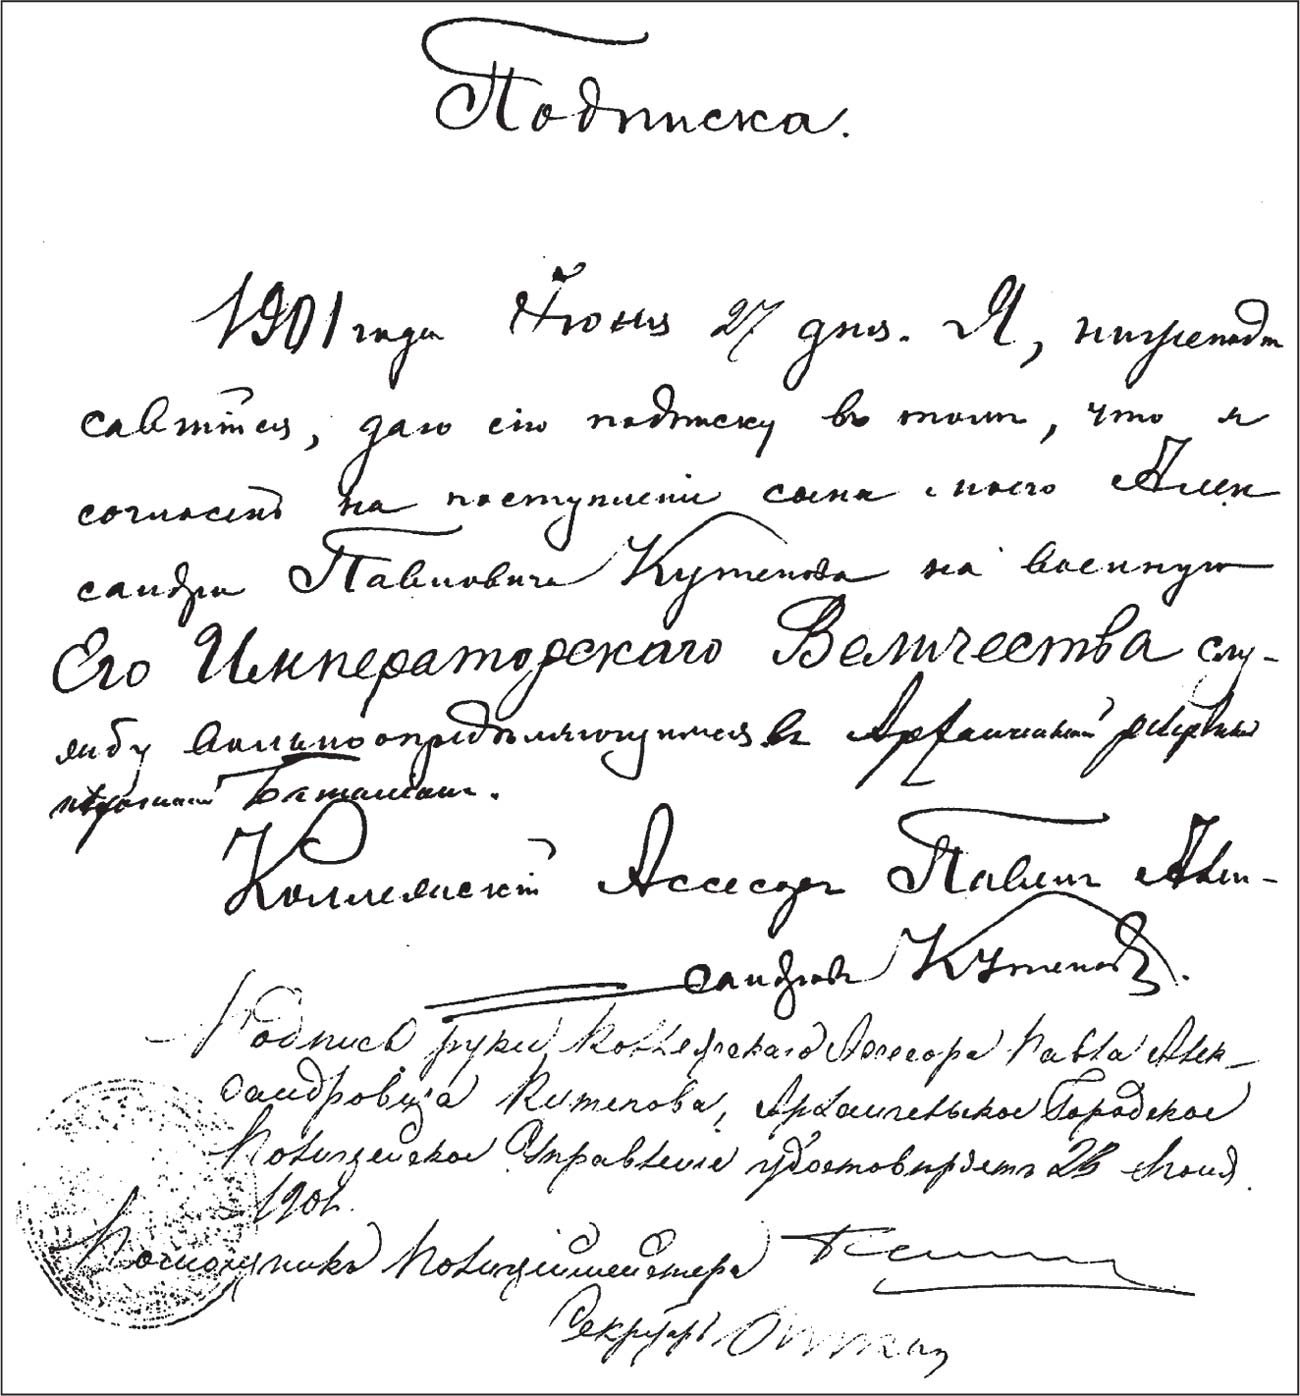 Подписка.
1901 года Іюня 27 дня. Я, нижеподпи
савшійся, даю сію подписку въ томъ, что я
согласенъ на поступленіе сына моего Алек
сандра Павловича Кутепова на военную
Его Императорскаго Величества слу-
жбу вольноопредѣляющимся въ Архангельскій резервный
пѣхотный Баталіонъ.
Коллежскій Ассесоръ Павелъ Алек-
сандровъ Кутеповъ.
Подпись руки Коллежскаго Ассесора Павла Алек-
сандровича Кутепова, Архангельское Городское
Полицейское Управленіе удостовѣряетъ 28 Іюня
1901.
Помощникъ Полиціймейстера
Секретарь